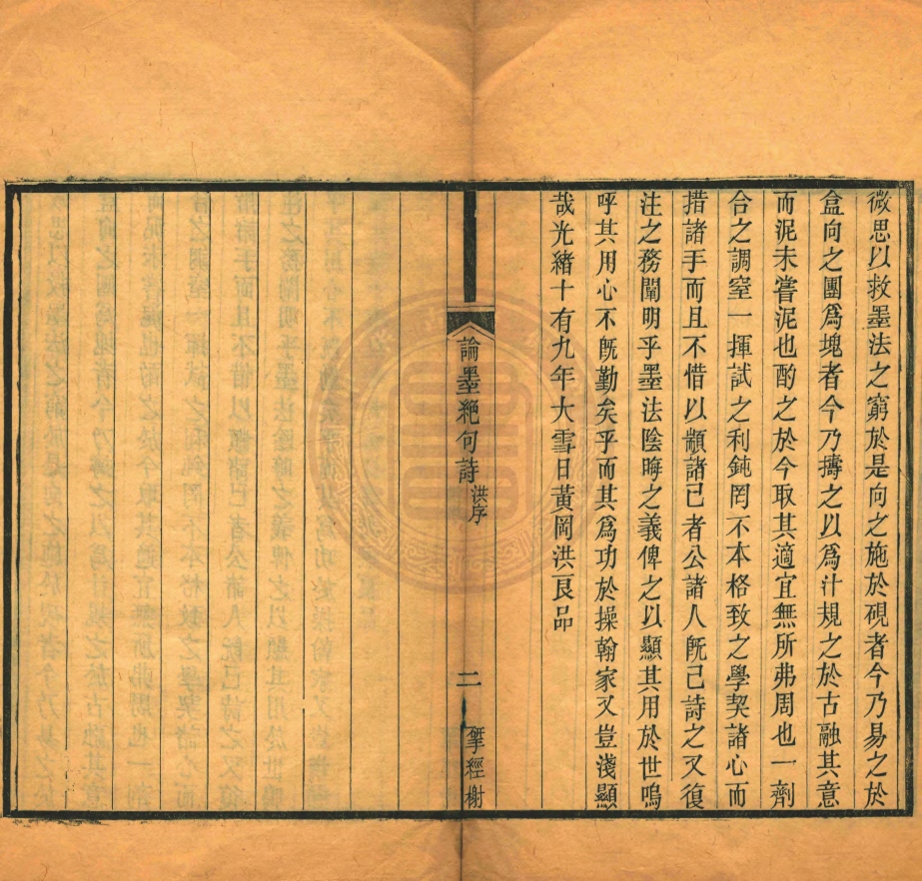 微思以救墨法之窮於是向之施於硯者今乃易之於
盒向之團爲塊者今乃擣之以爲汁規之於古融其意
而泥未嘗泥也酌之於今取其適宜無所弗周也一劑
合之調窒一揮試之利鈍罔不本格致之學契諸心而
措諸手而且不惜以顓諸己者公諸人旣己詩之又復
注之務闡明乎墨法陰晦之義俾之以顯其用於世嗚
呼其用心不旣勤矣乎而其爲功於操翰家又豈淺顯
哉光緒十有九年大雪日黃岡洪良品
論墨絕句詩 洪序
二
揅經榭